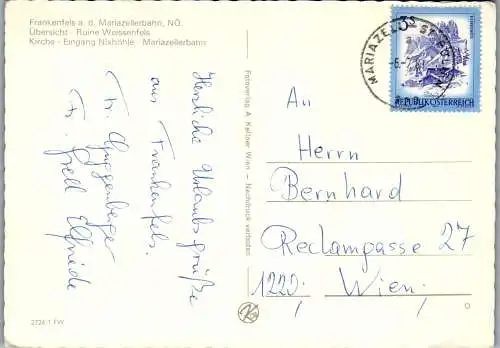 Frankenfels a. d. Mariazellerbahn, NÖ.
Übersicht · Ruine Weissenfels
Kirche · Eingang Nixhöhle · Mariazellerbahn
Herzliche Urlaubsgrüße
aus Frankenfels.
Fr. Guggenberger
Fr. Grell Elfriede
Fotoverlag A. Kellner Wien – Nachdruck verboten
MARIAZELL
3S
REPUBLIK ÖSTERREICH
An
Herrn
Bernhard
Reclamgasse 27
1220, Wien,
2724/1 FW